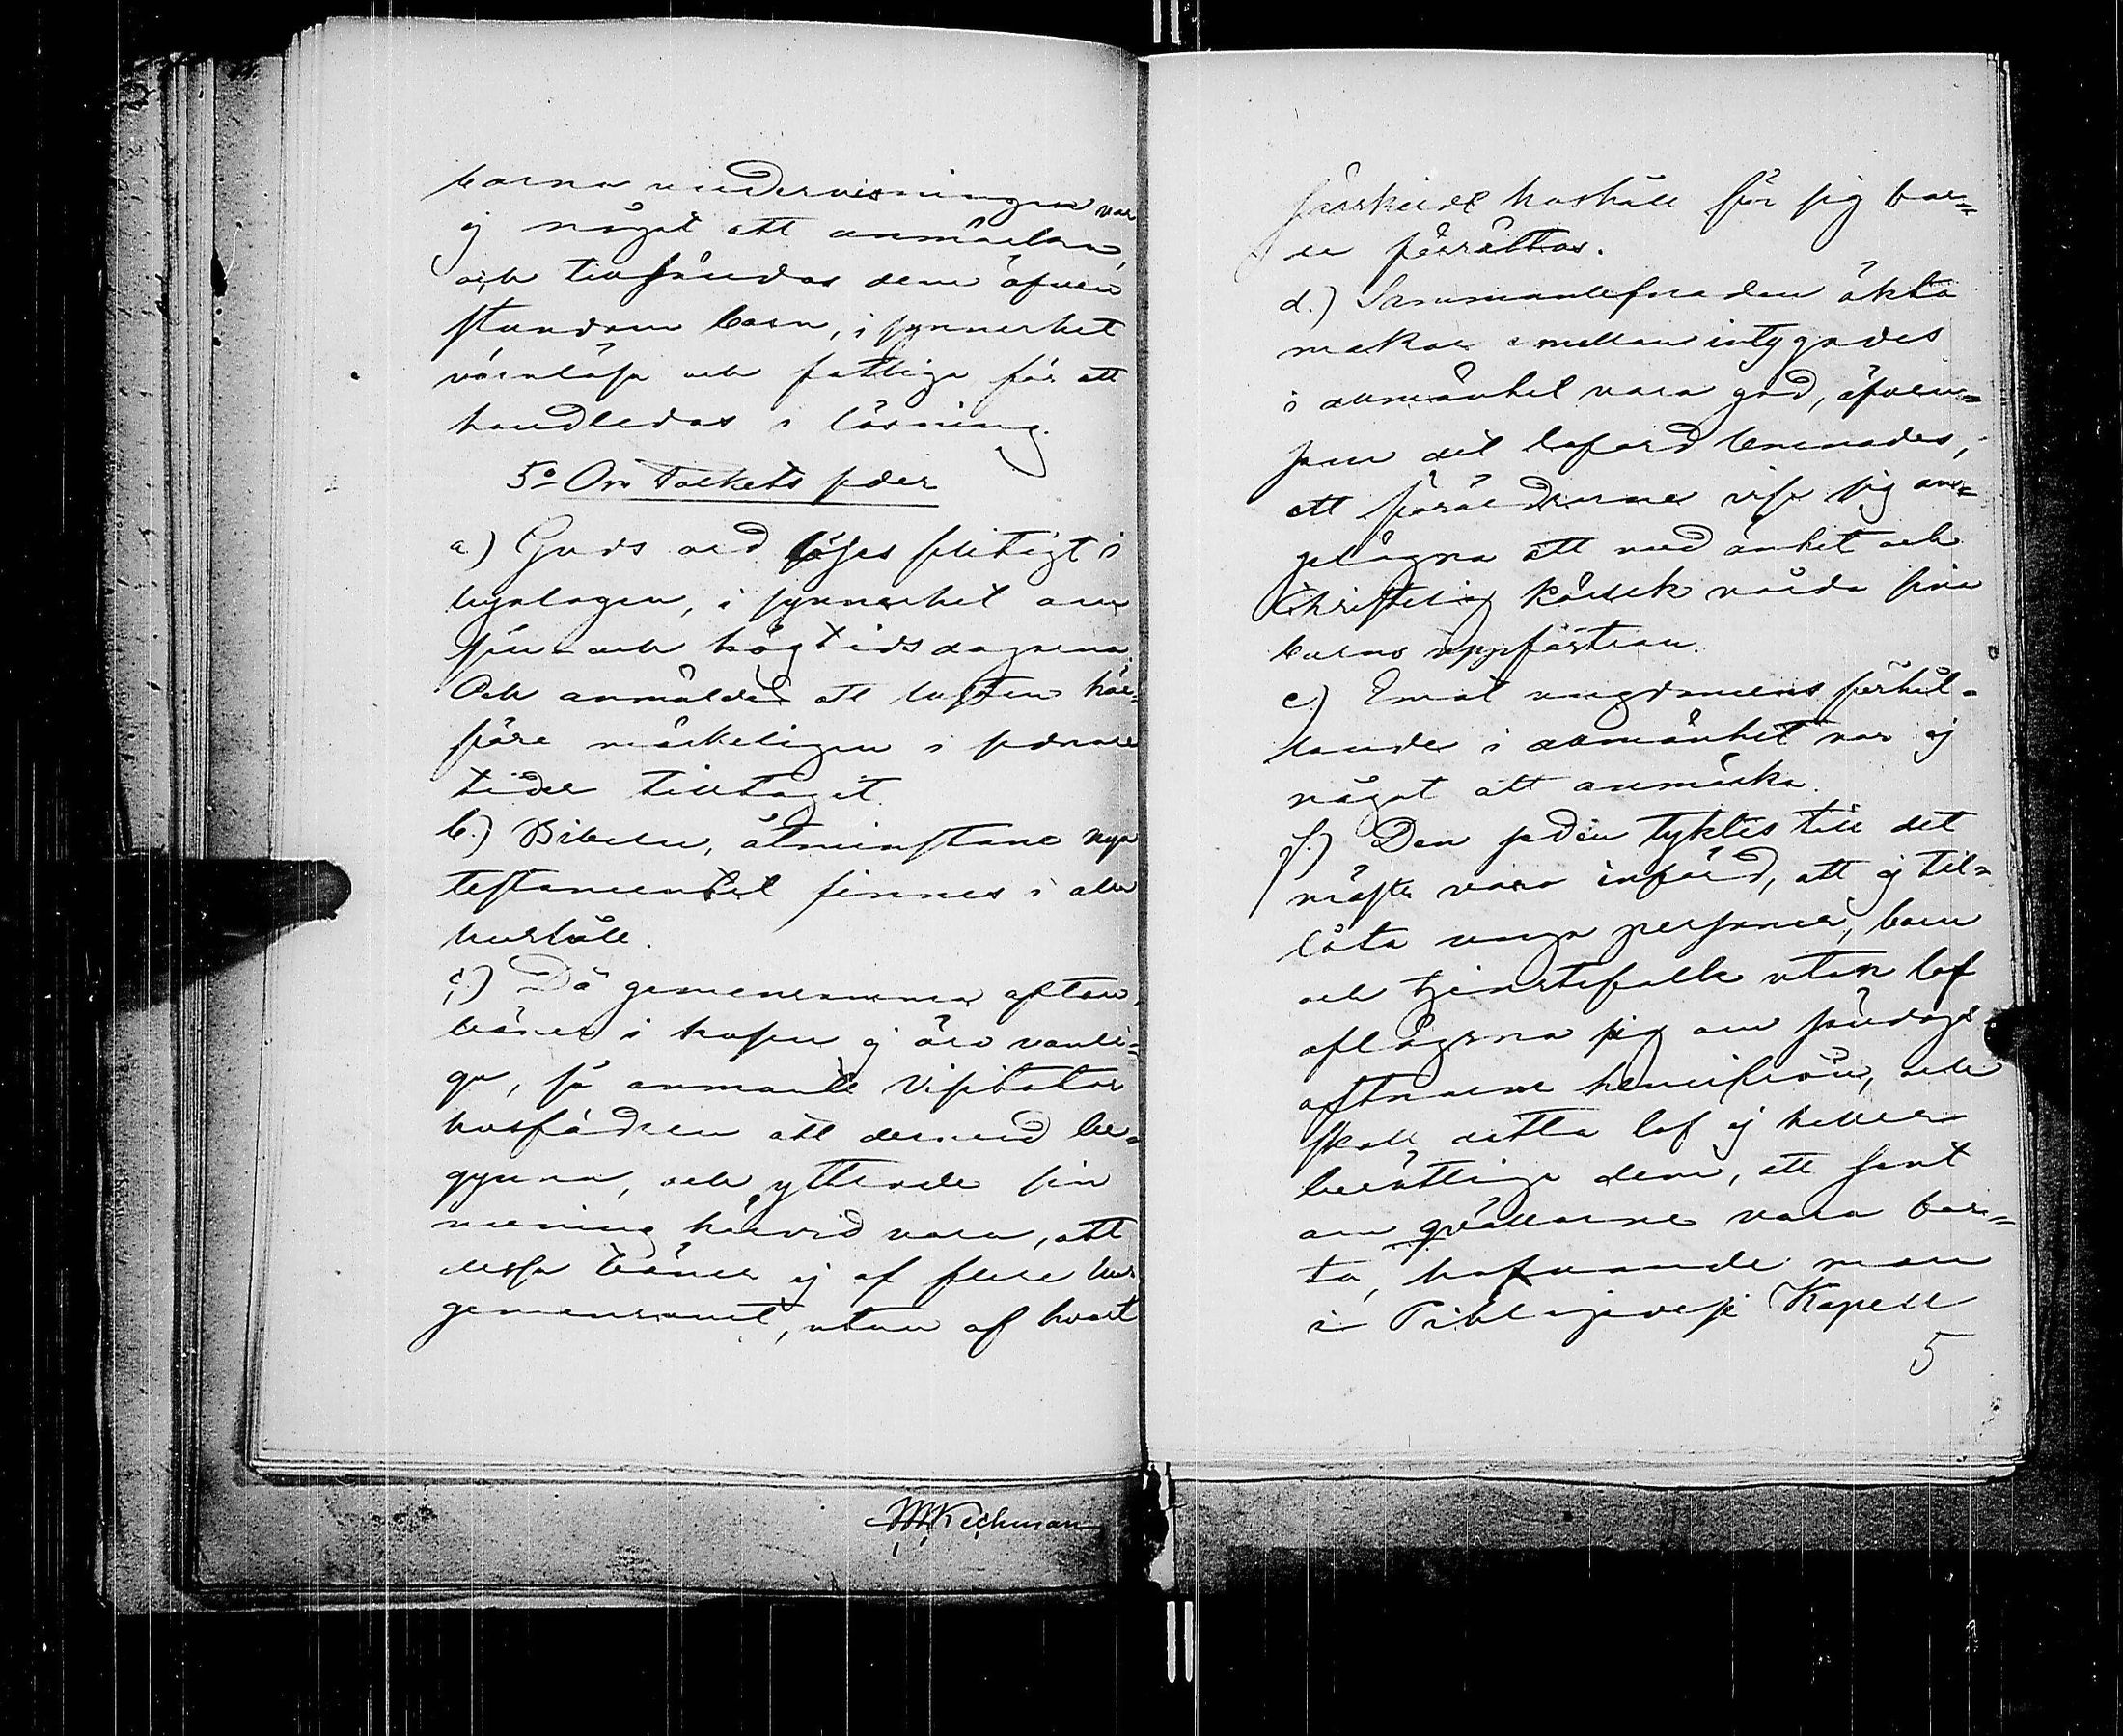 barna undervisningen var
ej något att anmärka,
och tillsändas dem äfven
stundom barn, i synnerhet
värnlösa och fattiga för att
handledas i läsning.
5º Om Folkets seder
a) Guds ord läses flitigt i
byalagen, i synnerhet om
sön- och högtidsdagarna.
Och anmäldes att lusten här-
före märkeligen i sednare
tider tilltagit.
b.) Bibeln, åtminstone nya
testamentet finnes i alla
hushåll.
c.) Då gemensamma afton-
böner i husen ej äro vanli-
ga, så anmante Visitator
husfädren att dermed be-
gynna, och yttrade sin
mening härvid vara, att
dessa böner ej af flere hus
gemensamt, utan af hvart
särskildt hushåll för sig bor-
de förrättas.
d.) Sammanlefnaden äkta
makar emellan intygades
i allmänhet vara god, äfven-
som det loford lemnades,
att föräldrarne visa sig an-
gelägna att med ömhet och
Christelig kärlek vårda sina
barns uppfostran.
e.) Emot ungdomens förhål-
lande i allmänhet var ej
något att anmärka.
f.) Den seden tycktes till det
mesta vara införd, att ej til-
låta unga personer, barn
och tjenstefolk utan lof
aflägsna sig om söndags
aftnarne hemifrån, och
skall detta lof ej heller
berättiga dem, att sent
om qvällarne vara bor-
ta, hafvande man
i Pihlajavesi Kapell
5